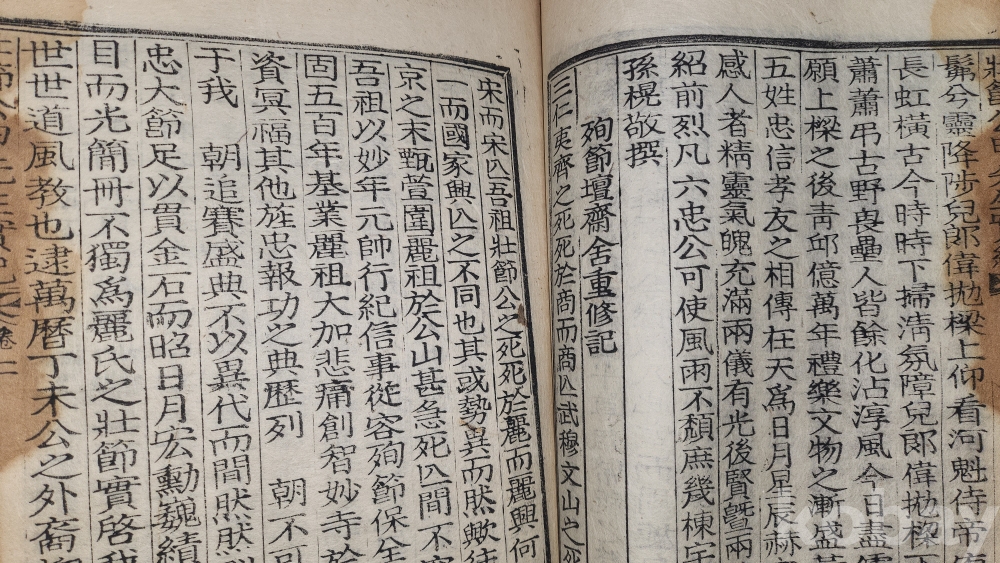 鬀兮靈降陟兒郞偉抛樑上仰看河魁侍帝
長虹橫古今時時下掃淸氛障兒郞偉抛樑下
蕭蕭弔古野輿壘人皆餘化沾淳風今日盡
願上樑之後靑邱億萬年禮樂文物之漸盛
五姓忠信孝友之相傳在天爲日月星辰赫
感人者精靈氣魄充滿兩儀有光後賢曁兩
紹前烈凡六忠公可使風雨不頹庶幾棟宇
孫榥敬撰
殉節壇齋舍重修記
三仁夷齊之死死於商而商亾武穆文山之死
宋而宋亾吾祖壯節公之死死於麗而麗興何
一而國家興亾之不同也其或勢異而然歟
京之末甄萱圍麗祖於公山甚急死亾間不
吾祖以妙年元帥行紀信事從容殉節保全
固五百年基業麗祖大加悲痛創智妙寺於
資冥福其他旌忠報功之典歷列 朝不
于我 朝追賽盛典不以異代而間然然
忠大節足以貫金石而昭日月宏勳巍績
目而光簡冊不獨爲麗氏之壯節實啓我
世世道風敎也逮萬曆丁未公之外裔